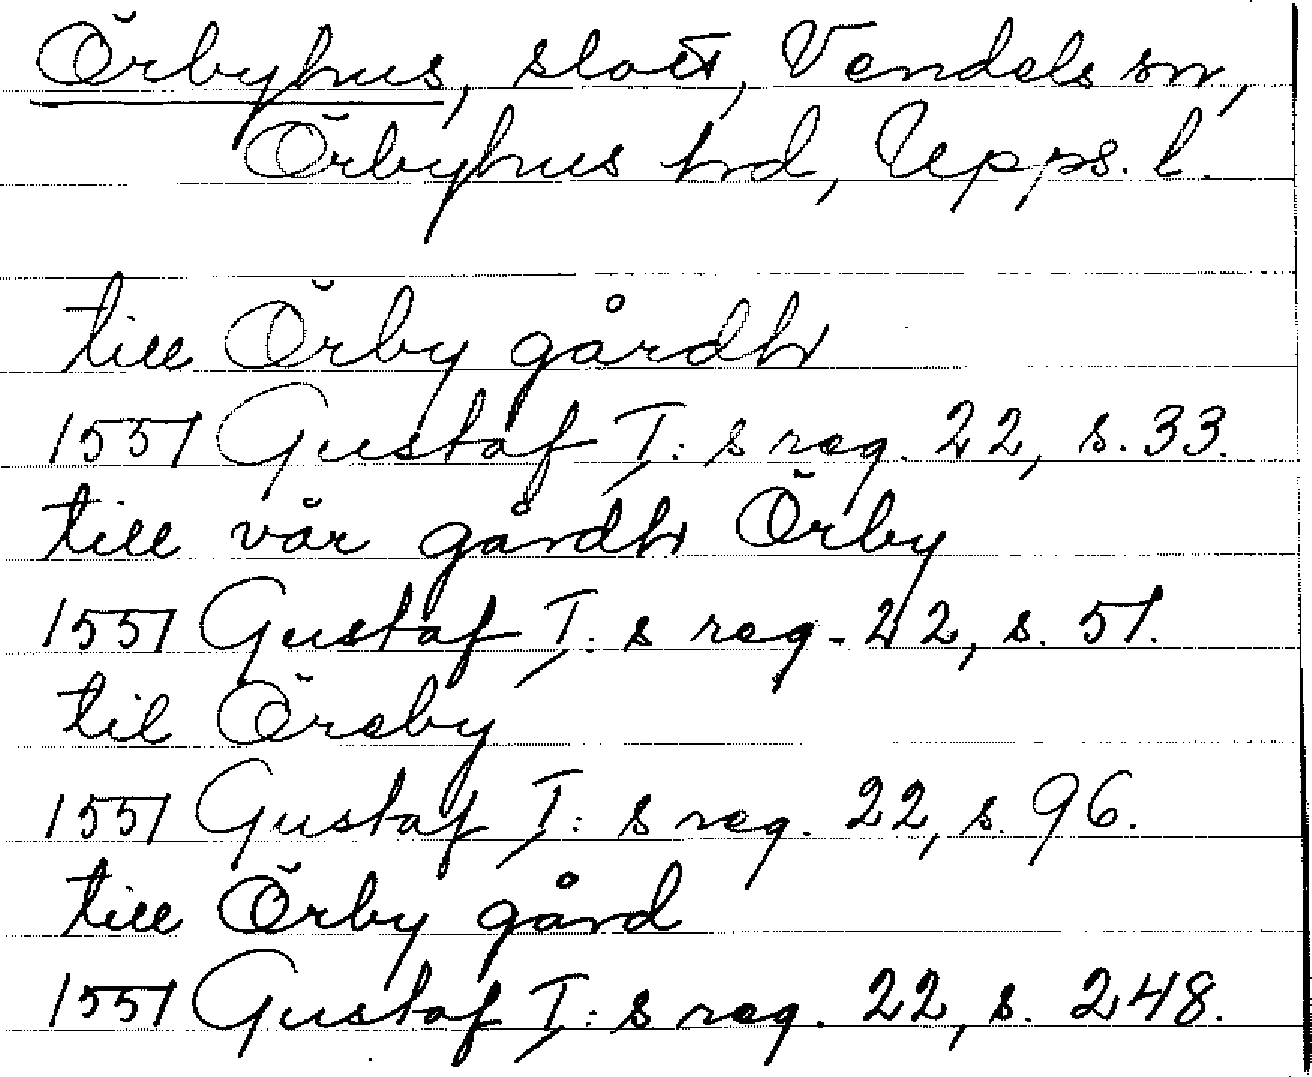 Örbyhus, slott, Vendels sn,
Örbyhus hd, Upps. l.
till Örby gårdh
1551 Gustaf I: s reg. 22, s. 33.
till vår gårdh Örby
1551 Gustaf I: s reg. 22, s. 51.
til Öreby
1551 Gustaf I: s reg. 22, s. 96.
till Örby gård
1551 Gustaf I: s reg. 22, s. 248.